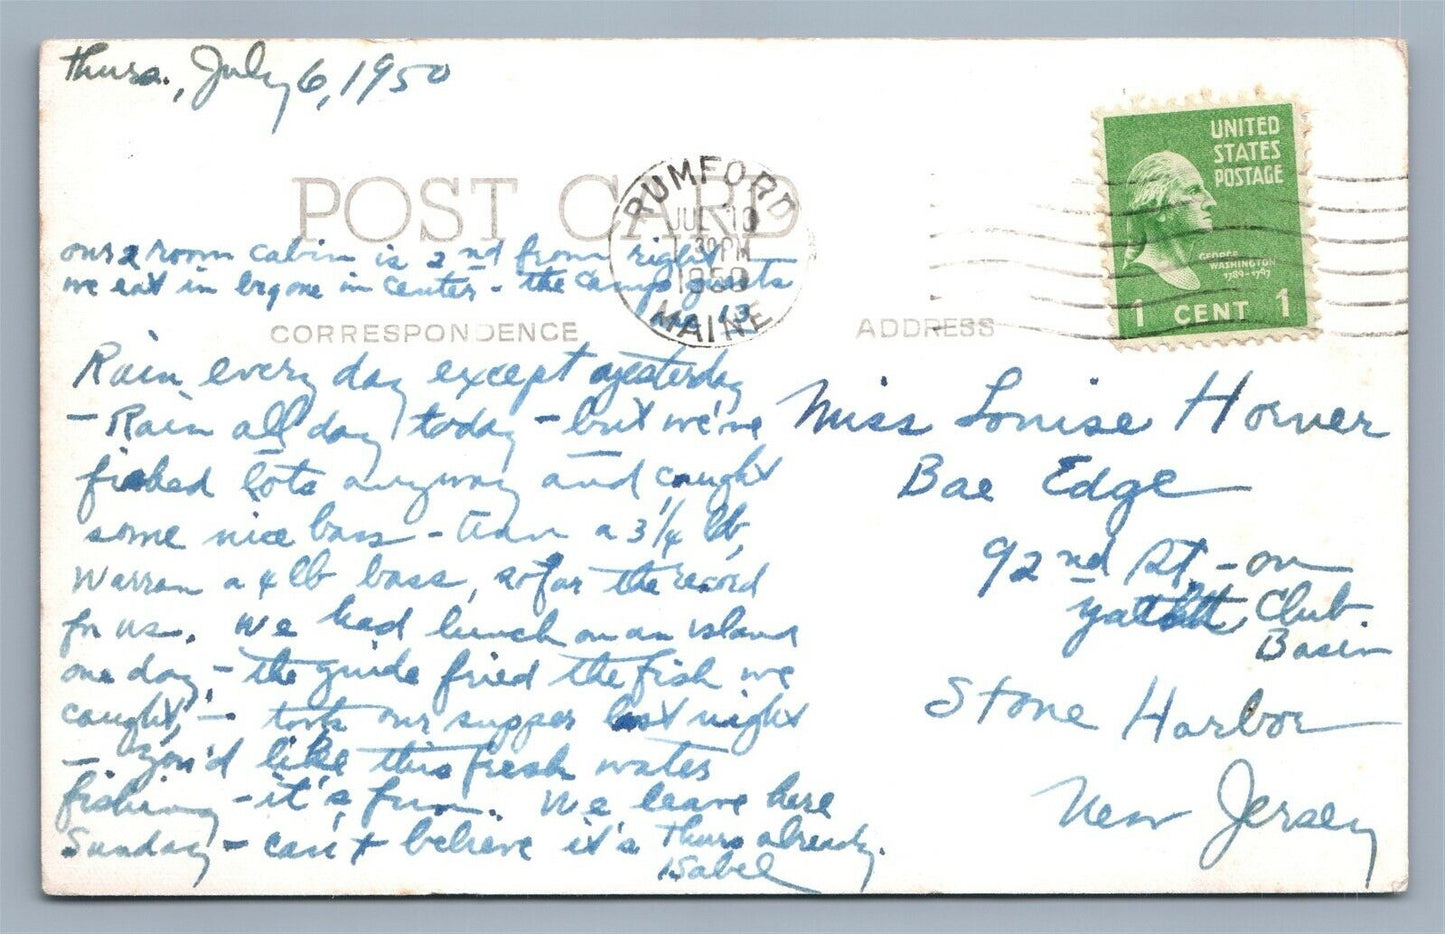 Thurs., July 6, 1950
POST CARD
RUMFORD
JUL 10
30 PM
1950
MAINE
UNITED
STATES
POSTAGE
GEORGE
WASHINGTON
1789-1797
1 CENT 1
our 2 room cabin is 2nd from right
we eat in big one in center - the camp guests
are 13
CORRESPONDENCE
ADDRESS
Rain every day except yesterday
- Rain all day today - but we've
fished lots anyway and caught
some nice bass - a 3 1/4 lb,
Warren a 4 lb bass, so far the record
for us. We had lunch on an island
one day, - the guide fried the fish we
caught, - took our supper last night
- You'd like this fresh water
fishing - it's fun. We leave here
Sunday - can't believe it's Thurs already.
Isabel
Miss Louise Horner
Bae Edge
92nd St - on
Yacht Club
Basin
Stone Harbor
New Jersey